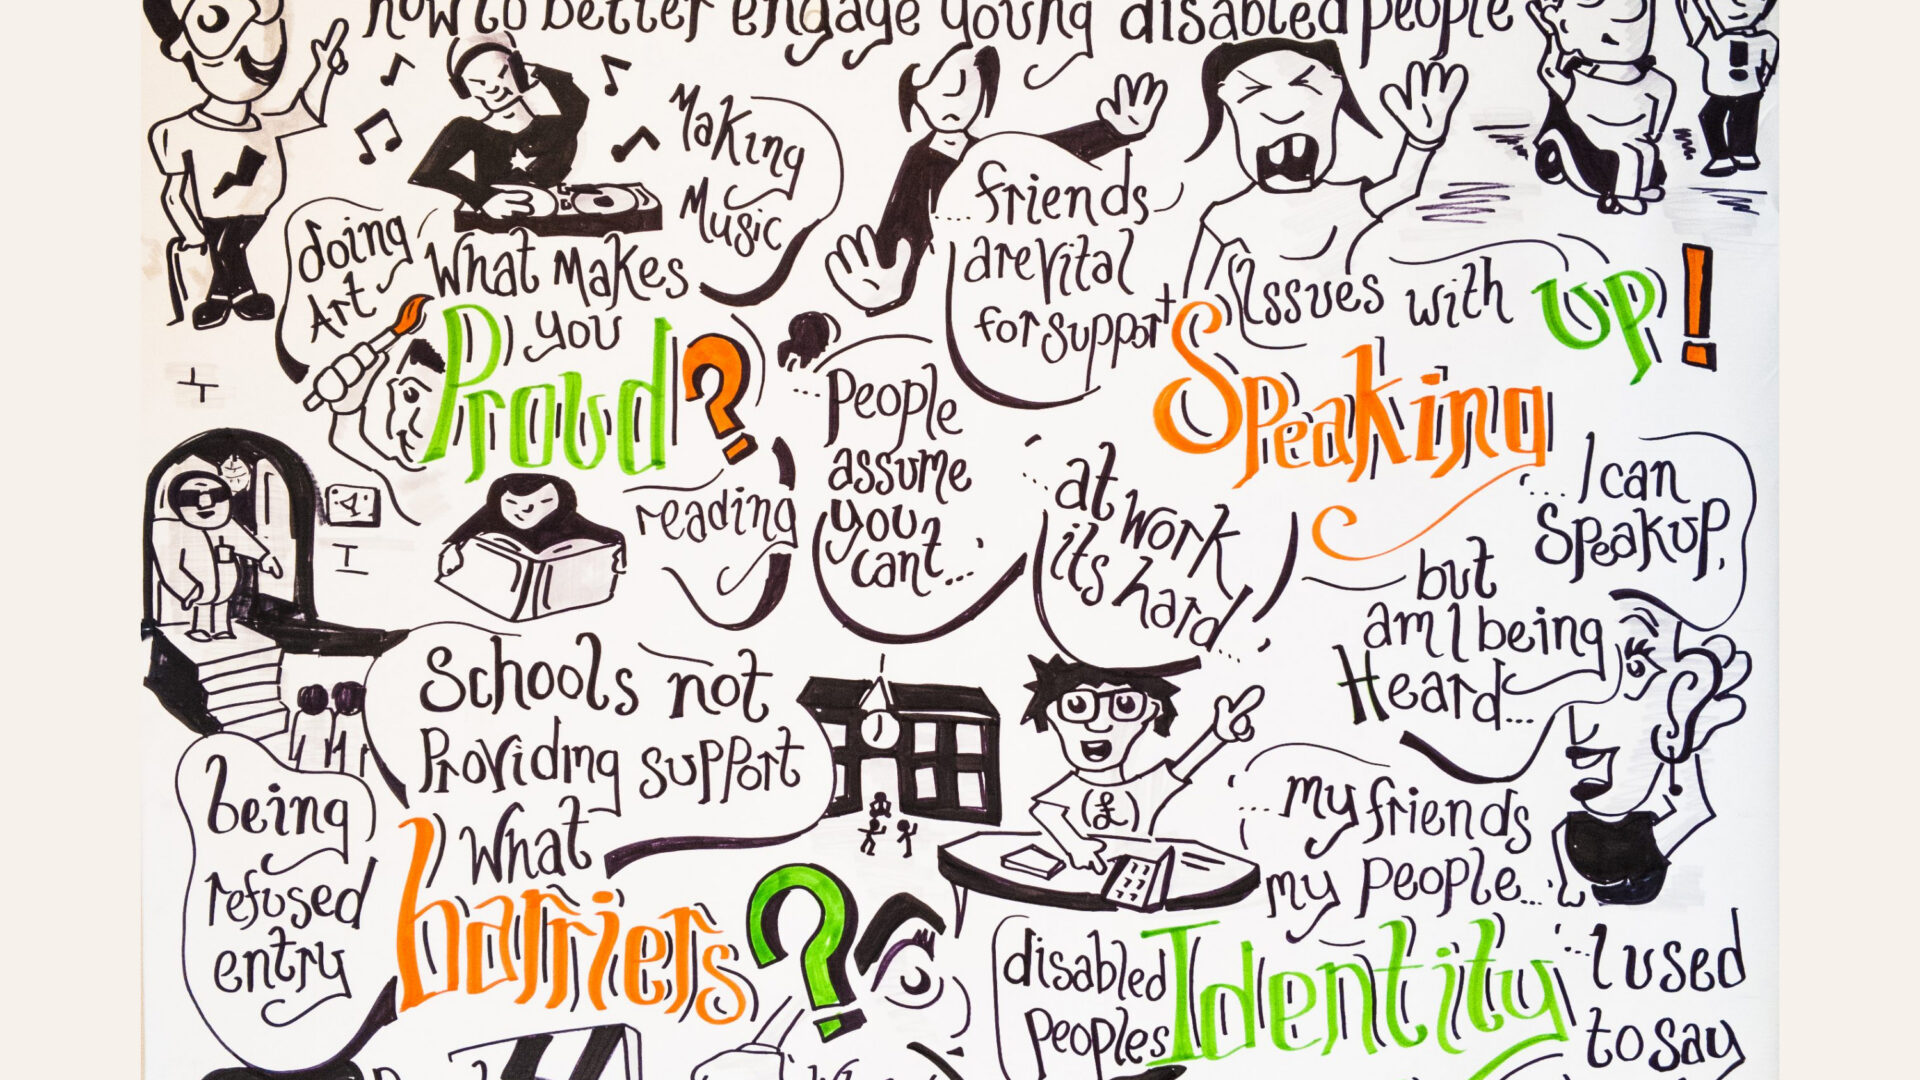 how to better engage young disabled people
Making
Music
doing
Art
What makes
you
Proud?
reading
...friends
are vital
for support
Issues with
Speaking
up!
...People
assume
you
cant...
...at work
its hard...
...I can
Speak up,
but
am I being
Heard...
Schools not
Providing support
being
refused
entry
What
barriers?
(£)
...my friends
my people...
disabled
peoples
Identity
...I used
to say